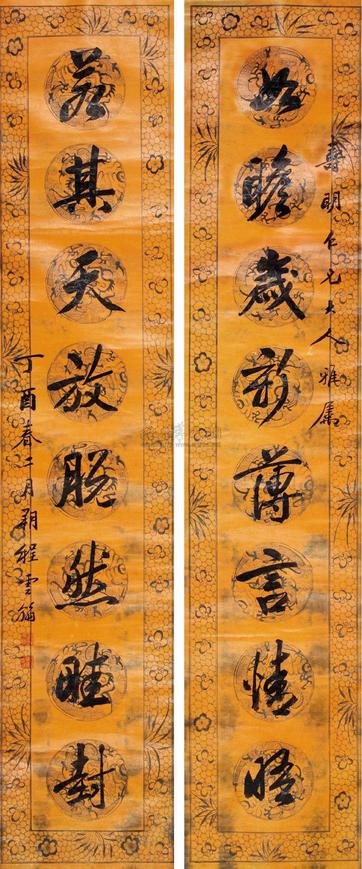 壽明仁兄大人雅屬
如瞻歲新薄言情晤
若其天放脱然畦封
丁酉春二月朔程雲